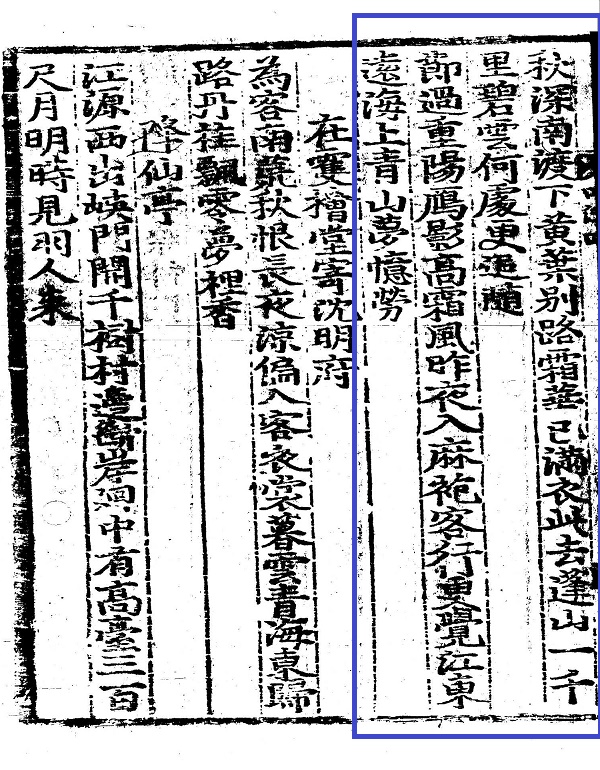 秋深南渡下黃葉別路霜華已滿衣此去蓬山一千
里碧雲何處更追隨
節過重陽鴈影高霜風昨夜入麻袍客行更覺江東
遠海上青山夢憶勞
在雙檜堂寄沈明府
為客南荒秋恨長夜涼偏入客衣裳暮雲青海東歸
路丹桂飄零夢裡香
降仙亭
江源西出峽門開千樹村邊岸廻中有高臺三百
尺月明時見羽人來